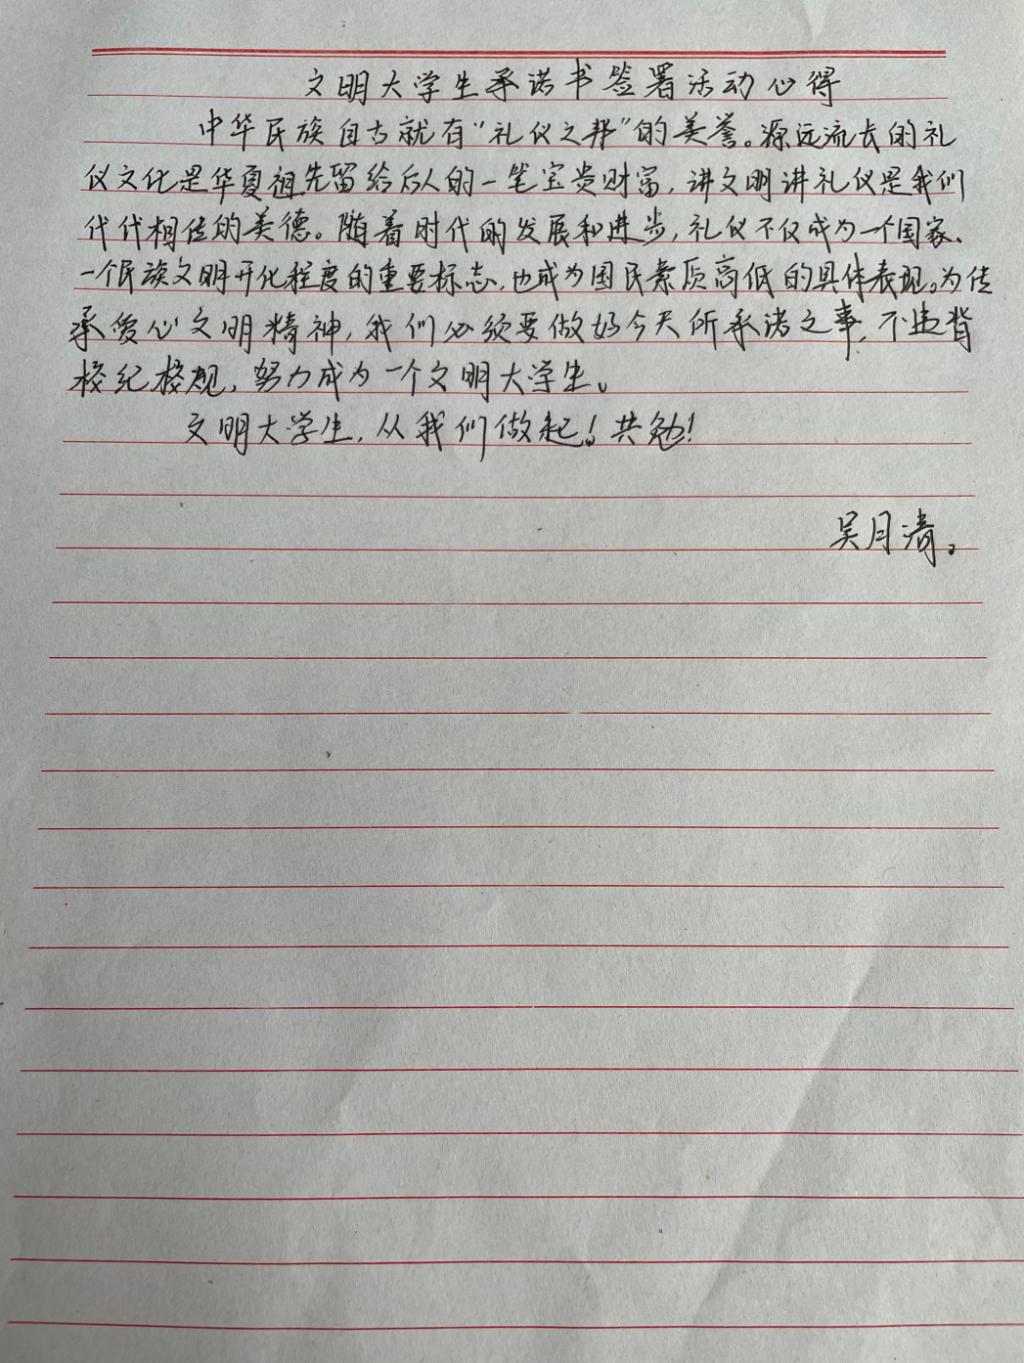 文明大学生承诺书签署活动心得
中华民族自古就有“礼仪之邦”的美誉。源远流长的礼
仪文化是华夏祖先留给后人的一笔宝贵财富，讲文明讲礼仪是我们
代代相传的美德。随着时代的发展和进步，礼仪不仅成为一个国家、
一个民族文明开化程度的重要标志，也成为国民素质高低的具体表现。为传
承爱心文明精神，我们必须要做好今天所承诺之事，不违背
校纪校规，努力成为一个文明大学生。
文明大学生，从我们做起！共勉！
吴月清。